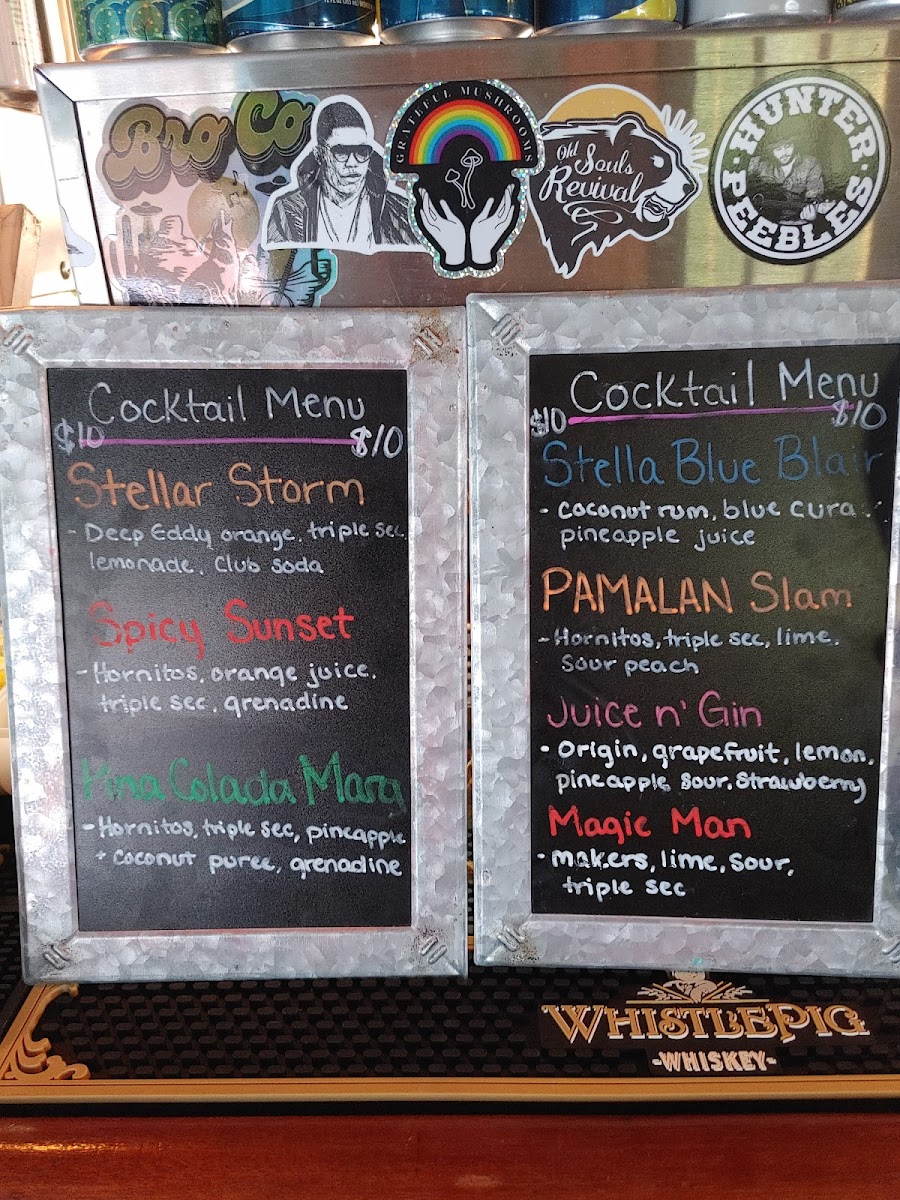 Bro Co
GRATEFUL MUSHROOMS
Old
Souls
Revival
HUNTER
PEEBLES
Cocktail Menu
$10 $10
Stellar Storm
- Deep Eddy orange, triple sec,
lemonade, Club soda
Spicy Sunset
- Hornitos, orange juice,
triple sec, grenadine
Pina Colada Marg
- Hornitos, triple sec, pineapple
+ Coconut puree, grenadine
Cocktail Menu
$10 $10
Stella Blue Blair
- Coconut rum, blue cura.
pineapple juice
PAMALAN Slam
- Hornitos, triple sec, lime,
Sour peach
Juice n' Gin
- Origin, grapefruit, lemon,
pineapple, sour, Strawberry
Magic Man
- makers, lime, sour,
triple sec
WHISTLEPIG
-WHISKEY-